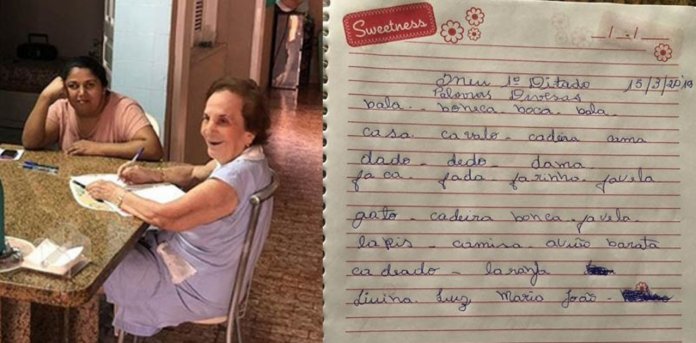 Sweetness
/ . /
Meu 1º Ditado 15/3/2019
Palavras Diversas
bala - boneca boca bola
casa cavalo - cadeira cama
dado - dedo - dama
faca fada - farinha - favela
gato - cadeira bonca - favela -
lapis - camisa avião barata
cadeado - laranja
Livina Luz, Maria João -